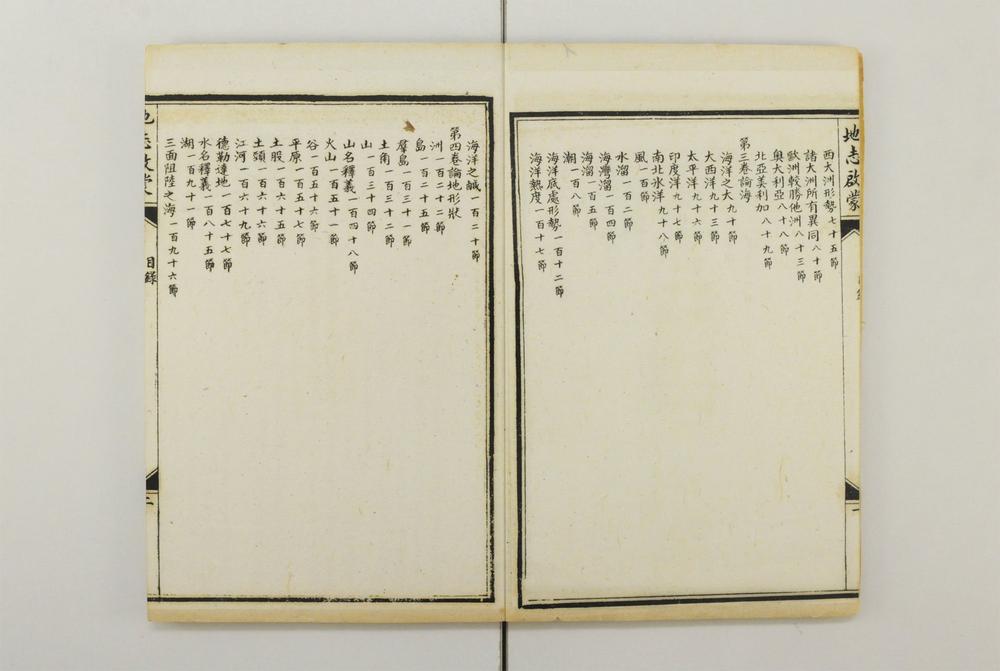 地志啟蒙
西大洲形勢七十五節
諸大洲所有異同八十節
歐洲較勝他洲八十三節
奧大利亞八十八節
北亞美利加八十九節
第三卷論海
海洋之大九十節
大西洋九十三節
太平洋九十六節
印度洋九十七節
南北氷洋九十八節
風一百節
水溜一百二節
海灣溜一百四節
海溜一百五節
潮一百八節
海洋底處形勢一百十二節
海洋熱度一百十七節
海洋之鹹一百二十節
第四卷論地形狀
洲一百二十二節
島一百二十五節
羣島一百三十一節
土角一百三十二節
山一百三十四節
山名釋義一百四十八節
火山一百五十一節
谷一百五十六節
平原一百五十七節
土股一百六十五節
土頸一百六十六節
江河一百六十九節
德勒達地一百七十七節
水名釋義一百八十五節
湖一百九十一節
三面阻陸之海一百九十六節
目錄
二